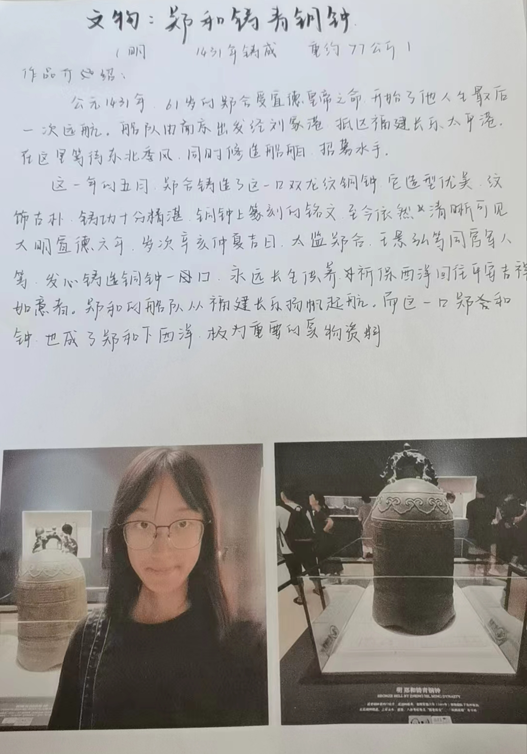 文物：郑和铸青铜钟
（明 1431年铸成 重约77公斤）
作品介绍：
公元1431年，61岁的郑和受宣德皇帝之命，开始了他人生最后
一次远航。船队由南京出发经刘家港，抵达福建长乐太平港，
在这里等待东北季风，同时修造船舶，招募水手。
这一年的五月，郑和铸造了这一口双龙纹铜钟，它造型优美，纹
饰古朴，铸功十分精湛，铜钟上篆刻的铭文，至今依然清晰可见
大明宣德六年，岁次辛亥仲夏吉日，太监郑和，王景弘等同官军人
等，发心铸造铜钟一口，永远长生供养祈保西洋回往平安吉祥
如意者。郑和的船队从福建长乐扬帆起航。而这一口郑和
钟，也成了郑和下西洋，极为重要的实物资料
明 郑和铸青铜钟
BRONZE BELL BY ZHENG HE, MING DYNASTY